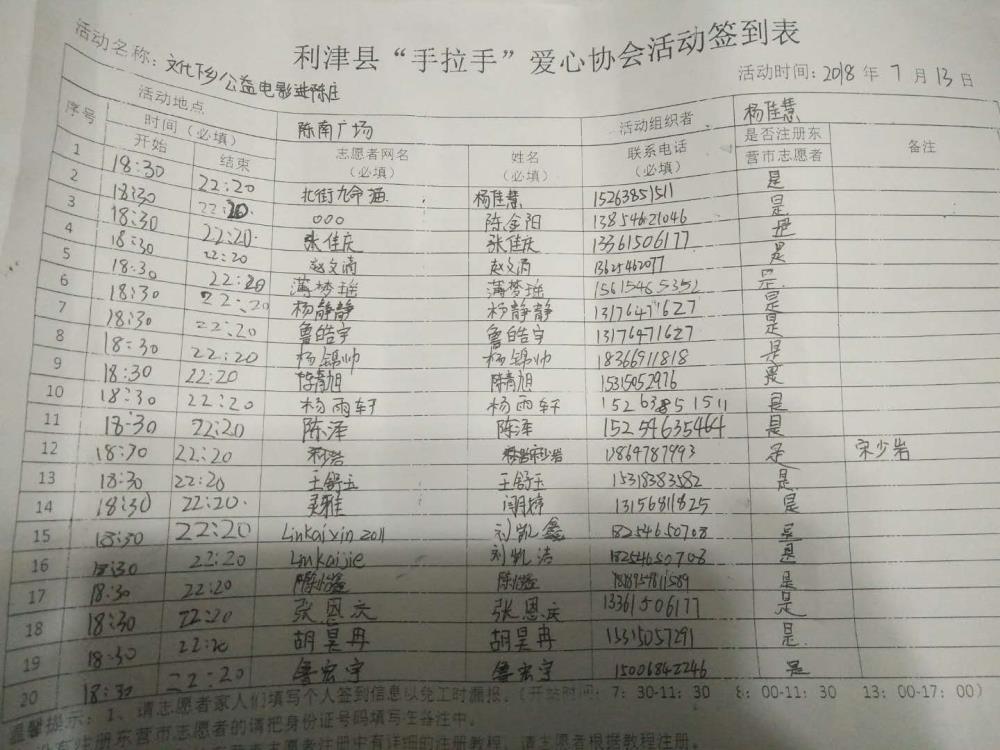 利津县“手拉手”爱心协会活动签到表
活动名称：文化下乡公益电影进陈庄 活动时间：2018年7月13日
序号 活动地点 陈南广场 活动组织者 杨佳慧
时间（必填） 志愿者网名（必填） 姓名（必填） 联系电话（必填） 是否注册东营市志愿者 备注
开始 结束
1 18:30 22:20 北街九命猫 杨佳慧 15263851511 是
2 18:30 22:20 ooo 陈金阳 13854621046 是
3 18:30 22:20 张佳庆 张佳庆 13361506177 是
4 18:30 22:20 赵文滴 赵文滴 13625462077 是
5 18:30 22:20 薄梦瑶 薄梦瑶 15615485352 是
6 18:30 22:20 杨静静 杨静静 13176471627 是
7 18:30 22:20 鲁皓宇 鲁皓宇 13176471627 是
8 18:30 22:20 杨锦帅 杨锦帅 18366911818 是
9 18:30 22:20 陈青旭 陈青旭 15315052976 是
10 18:30 22:20 杨雨轩 杨雨轩 15263851511 是
11 18:30 22:20 陈泽 陈泽 15254635464 是
12 18:30 22:20 1864787993 是 宋少岩
13 18:30 22:20 王舒玉 王舒玉 15318383582 是
14 18:30 22:20 灵雅 闫婷 13156811825 是
15 18:30 22:20 Linkaixin2011 刘凯鑫 18254650708 是
16 18:30 22:20 Linkaijie 刘凯洁 18254650708 是
17 18:30 22:20 是
18 18:30 22:20 张恩庆 张恩庆 13361506177 是
19 18:30 22:20 胡昊冉 胡昊冉 15315057291 是
20 18:30 22:20 鲁宏宇 鲁宏宇 15006842246 是
温馨提示：1、请志愿者家人们填写个人签到信息以免工时漏报。（开站时间：7：30-11：30 8：00-11：30 13：00-17：00）
没有注册东营市志愿者的请把身份证号码填写在备注中。
志愿者注册中有详细的注册教程，请志愿者根据教程注册。